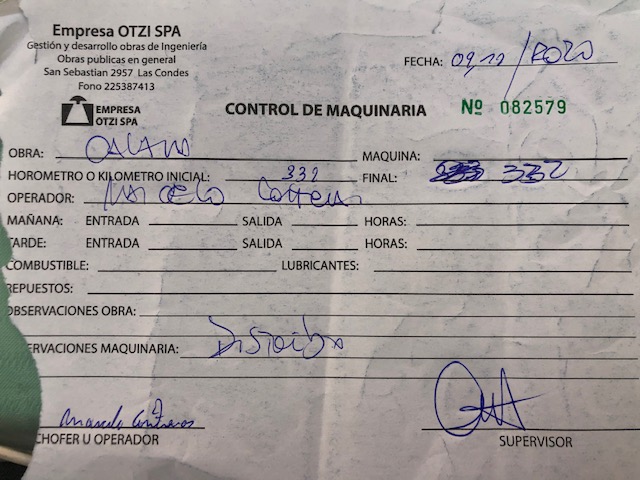 Empresa OTZI SPA
Gestión y desarrollo obras de Ingeniería
Obras publicas en general
San Sebastian 2957 Las Condes
Fono 225387413
EMPRESA
OTZI SPA
FECHA: 09/11/2020
CONTROL DE MAQUINARIA Nº 082579
OBRA: MAQUINA:
HOROMETRO O KILOMETRO INICIAL: 331 FINAL: 332
OPERADOR:
MAÑANA: ENTRADA SALIDA HORAS:
TARDE: ENTRADA SALIDA HORAS:
COMBUSTIBLE: LUBRICANTES:
REPUESTOS:
OBSERVACIONES OBRA:
ERVACIONES MAQUINARIA:
CHOFER U OPERADOR SUPERVISOR